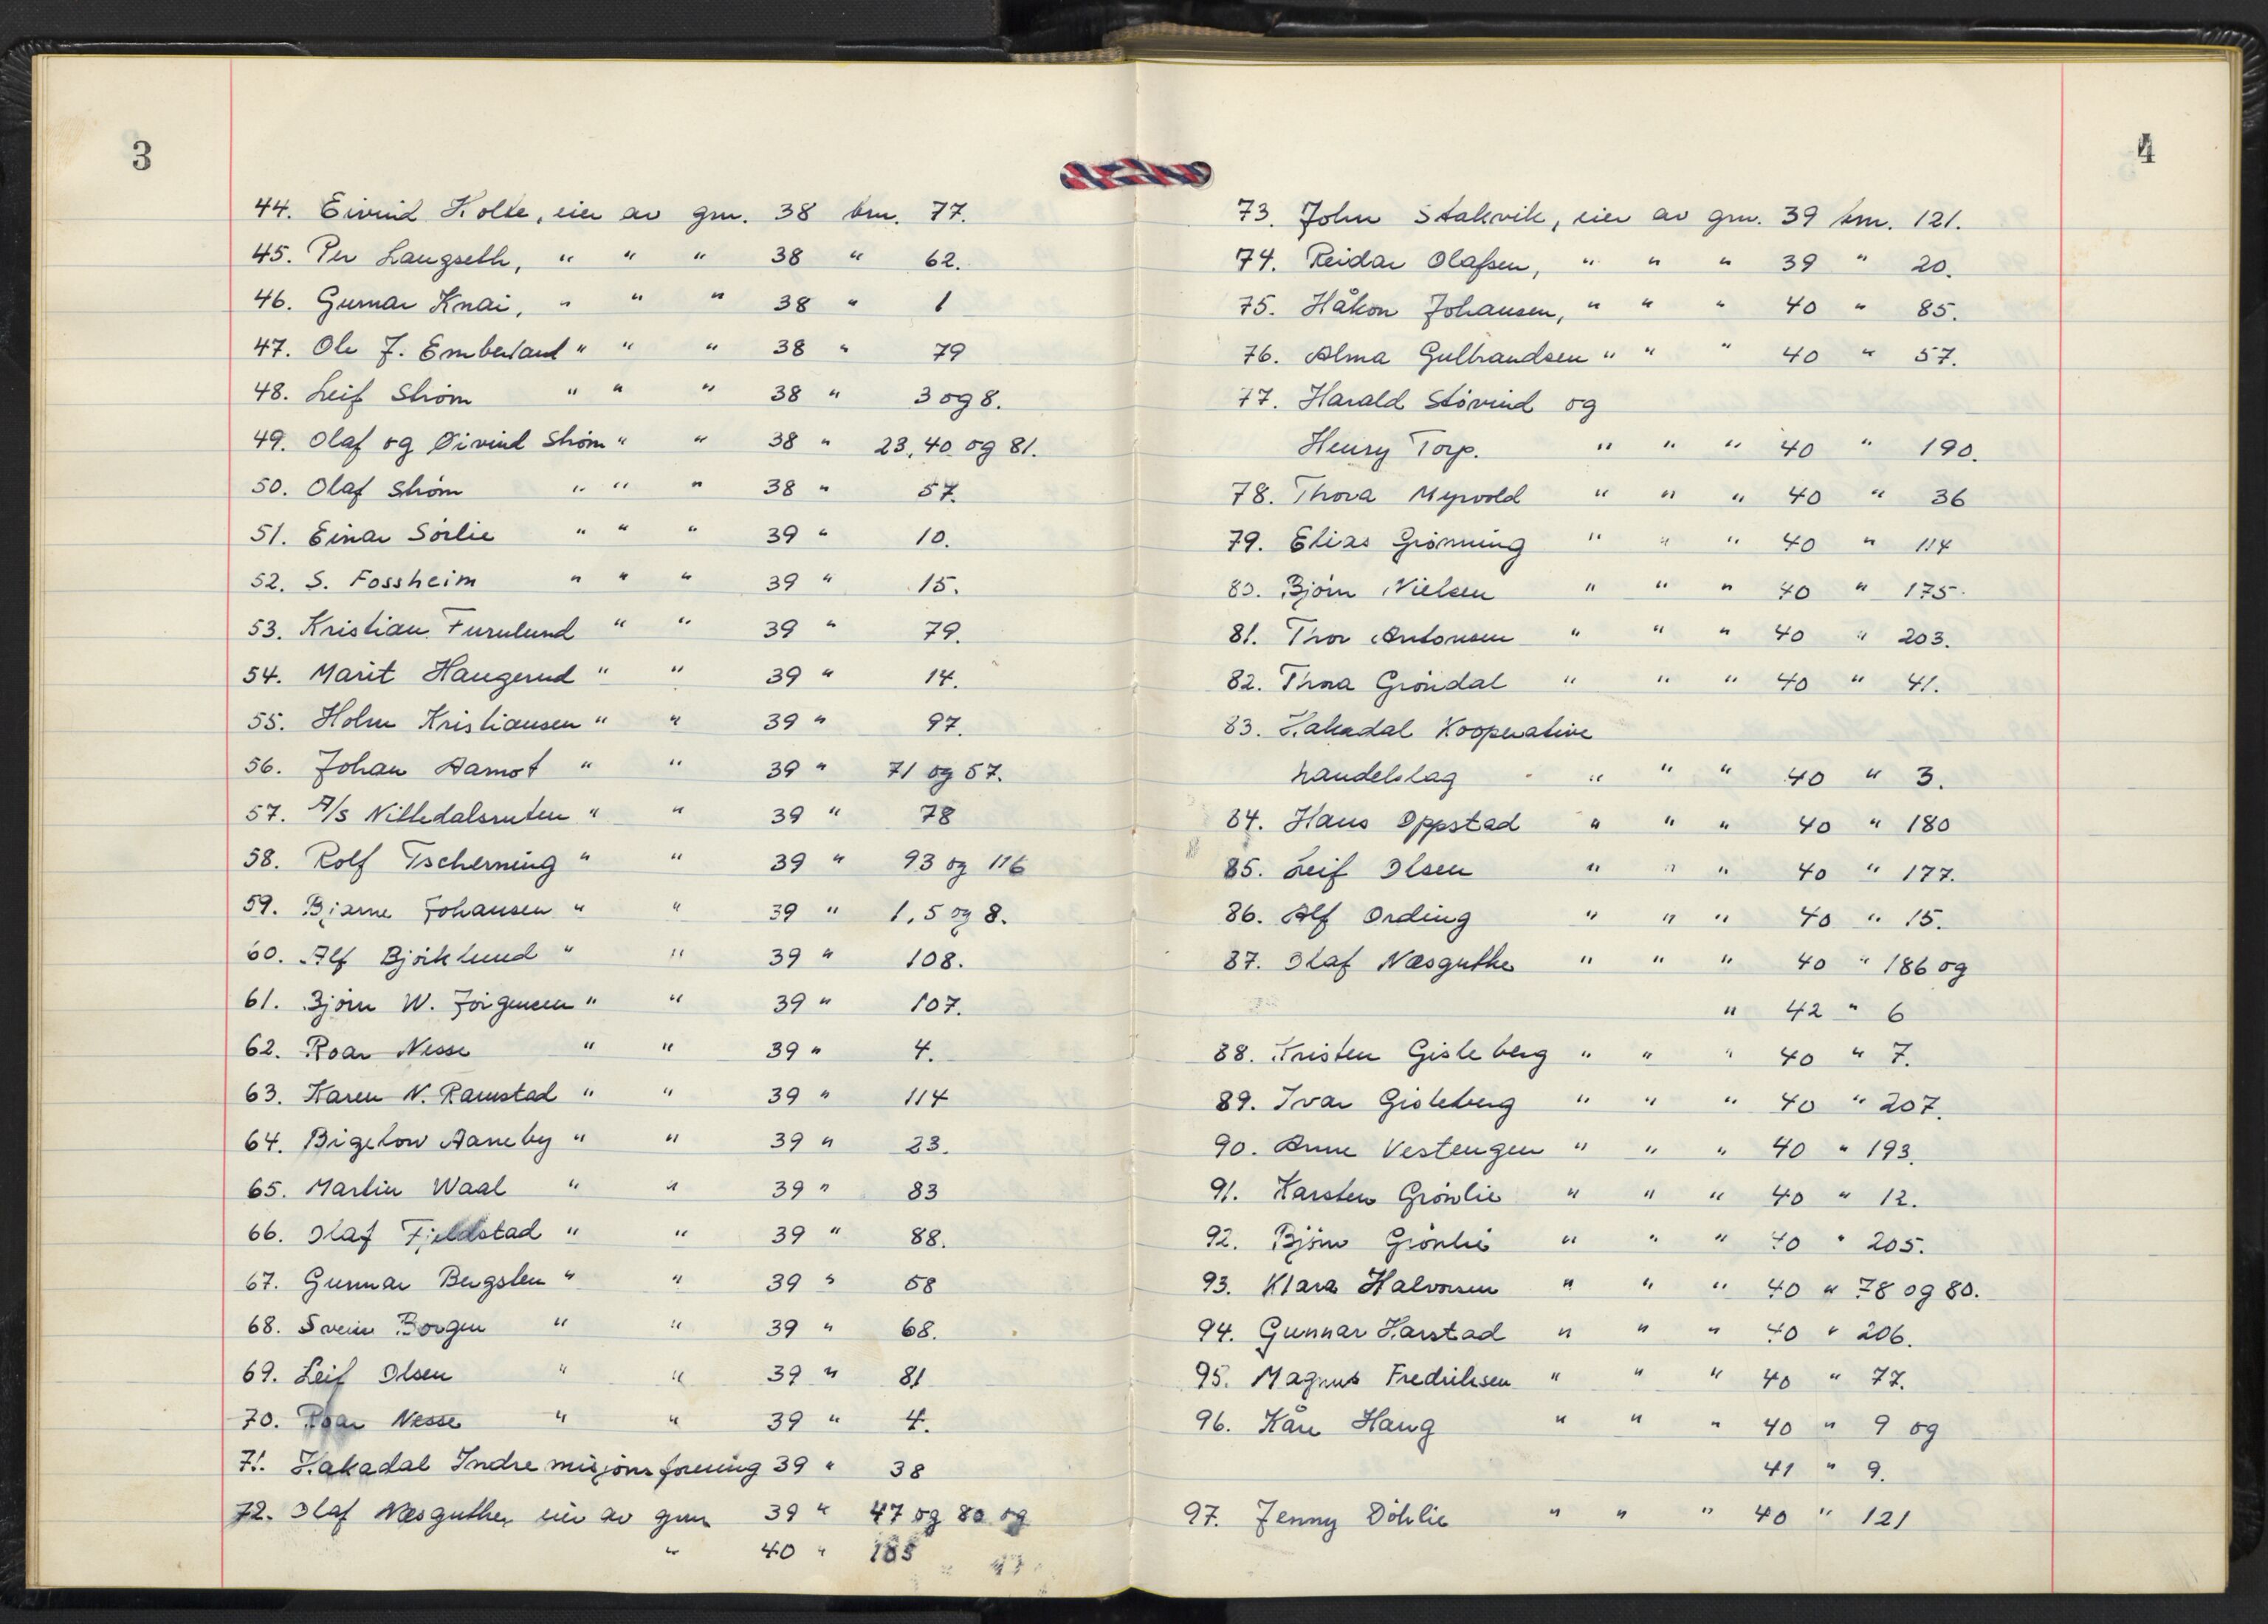 3
44. Eivind Kolte, eier av gnr. 38 bnr. 77.
45. Per Langseth, " " " 38 " 62.
46. Gunnar Knai, " " " 38 " 1
47. Ole J. Emberland " " " 38 " 79
48. Leif Strøm " " " 38 " 3 og 8.
49. Olaf og Øivind Strøm " " 38 " 23, 40 og 81.
50. Olaf Strøm " " " 38 " 57.
51. Einar Sörlie " " " 39 " 10.
52. S. Fossheim " " " 39 " 15.
53. Kristian Furulund " " 39 " 79.
54. Marit Haugerud " " 39 " 14.
55. Holm Kristiansen " " 39 " 97.
56. Johan Aamot " " 39 " 71 og 57.
57. A/s Nittedalsruten " " 39 " 78
58. Rolf Tscherning " " 39 " 93 og 116
59. Bjarne Johansen " " 39 " 1, 5 og 8.
60. Alf Björklund " " 39 " 108.
61. Björn W. Jörgensen " " 39 " 107.
62. Roar Nesse " " 39 " 4.
63. Karen N. Ramstad " " 39 " 114
64. Bigelow Aaneby " " 39 " 23.
65. Martin Waal " " 39 " 83
66. Olaf Fjeldstad " " 39 " 88.
67. Gunnar Bergsten " " 39 " 58
68. Svein Borgen " " 39 " 68.
69. Leif Olsen " " 39 " 81
70. Roar Nesse " " 39 " 4.
71. Hakadal Indremisjonsforening 39 " 38
72. Olaf Næsguthe, eier av gnr 39 " 47 og 80 og
" 40 " 185
4
73. John Stakvik, eier av gnr. 39 bnr. 121.
74. Reidar Olafsen, " " " 39 " 20.
75. Håkon Johansen, " " " 40 " 85.
76. Alma Gulbrandsen " " " 40 " 57.
77. Harald Stövind og
Henry Torp. " " " 40 " 190.
78. Thora Myrvold " " " 40 " 36
79. Elias Grönning " " " 40 " 114
80. Björn Nielsen " " " 40 " 175.
81. Thor Antonsen " " " 40 " 203.
82. Thora Gröndal " " " 40 " 41.
83. Hakadal Kooperative
handelslag " " " 40 " 3.
84. Hans Oppstad " " " 40 " 180
85. Leif Olsen " " " 40 " 177.
86. Alf Ording " " " 40 " 15.
87. Olaf Næsguthe " " " 40 " 186 og
" 42 " 6
88. Kristen Gisleberg " " " 40 " 7.
89. Ivar Gisleberg " " " 40 " 207.
90. Anne Vestengen " " " 40 " 193.
91. Karsten Grönlie " " " 40 " 12.
92. Björn Grönlie " " " 40 " 205.
93. Klara Halvorsen " " " 40 " 78 og 80.
94. Gunnar Harstad " " " 40 " 206.
95. Magnus Fredriksen " " " 40 " 77.
96. Kåre Haug " " " 40 " 9 og
41 " 9.
97. Jenny Döhlie " " " 40 " 121